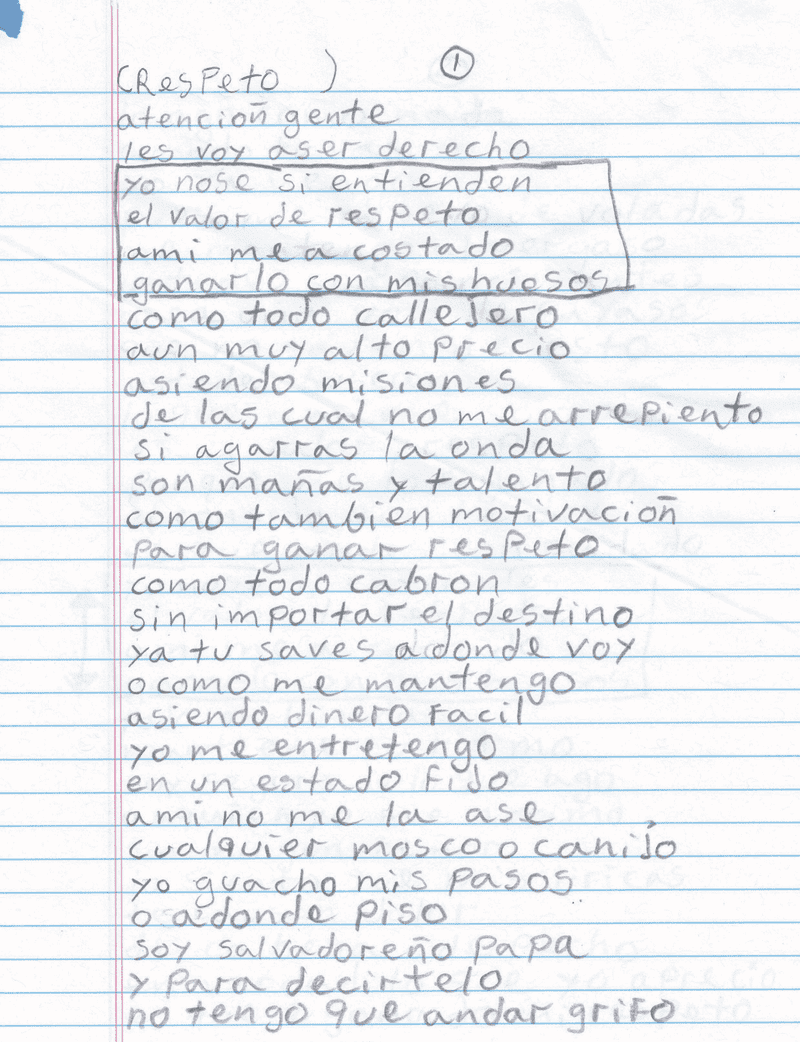 (Respeto ) 1
atencioñ gente
les voy aser derecho
yo nose si entienden
el valor de respeto
ami me a costado
ganarlo con mis huesos
como todo callejero
aun muy alto precio
asiendo misiones
de las cual no me arrepiento
si agarras la onda
son mañas y talento
como tambien motivacioñ
para ganar respeto
como todo cabron
sin importar el destino
ya tu saves adonde voy
o como me mantengo
asiendo dinero facil
yo me entretengo
en un estado fijo
ami no me la ase
cualquier mosco o canijo
yo guacho mis pasos
o adonde piso
soy salvadoreño papa
y para decirtelo
no tengo que andar grifo